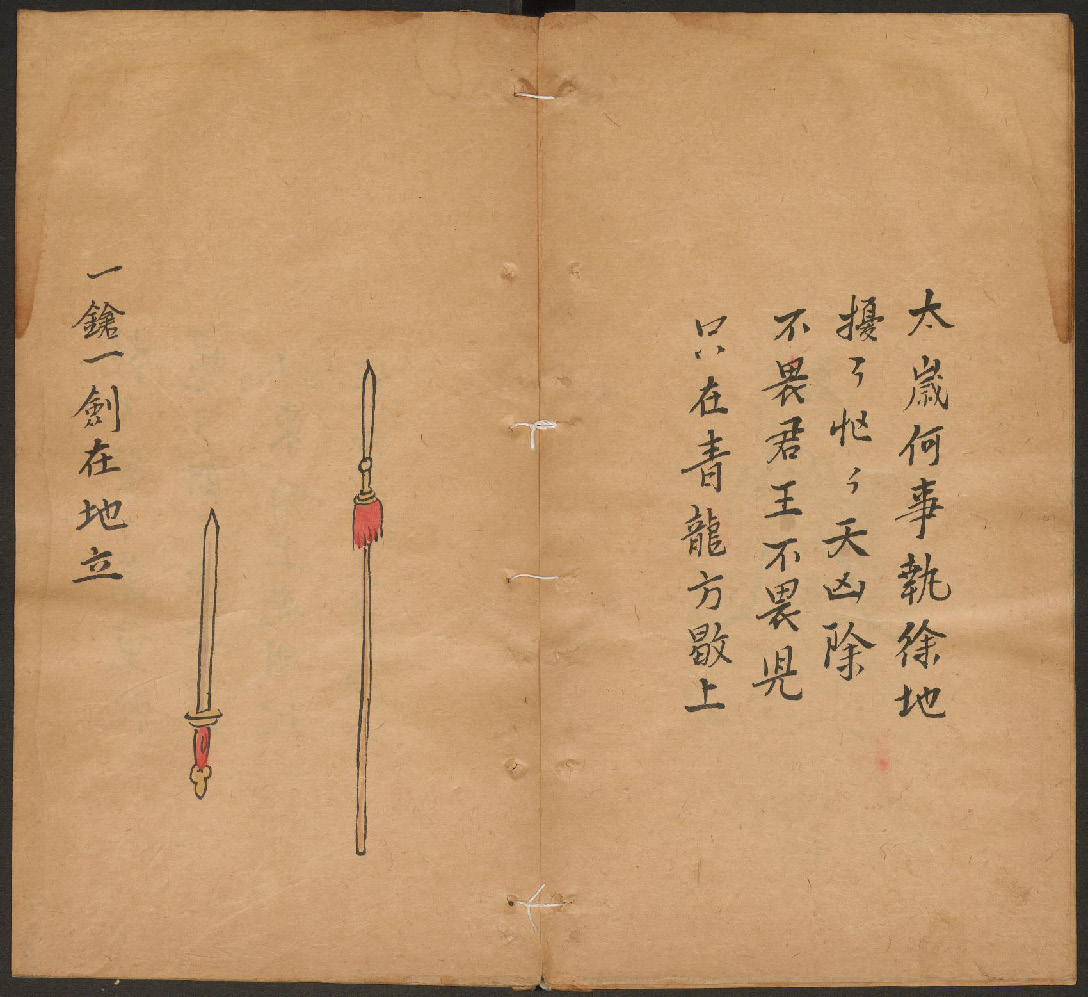 太歲何事執徐地
擾々忙々天凶除
不畏君王不畏児
只在青龍方歇上
一鎗一劍在地立